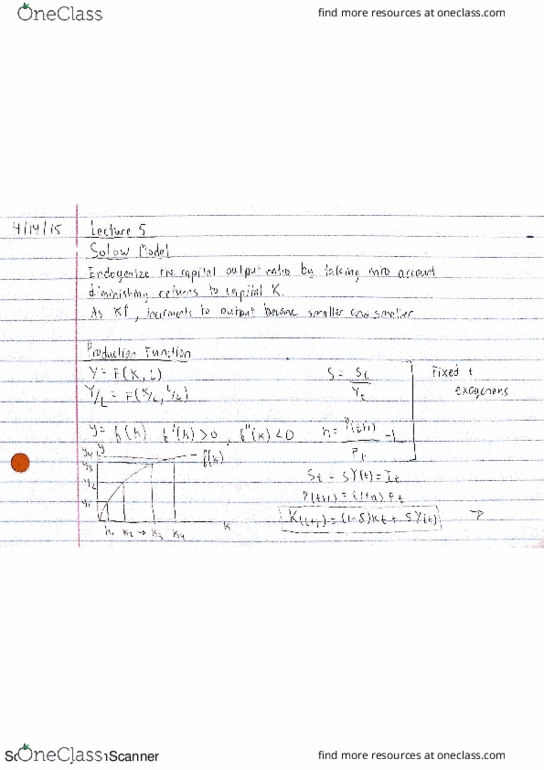 OneClass find more resources at oneclass.com
4/14/15 Lecture 5
Solow Model
Endogenize the capital output ratio by taking into account
diminishing returns to capital K.
As K↑, increments to output become smaller and smaller
Production Function
Y = F(K, L) S = St/Yt Fixed + exogenous
Y/L = F(K/L, L/L)
y = f(k) f'(k) > 0, f''(k) < 0 n = P(t+1)/Pt - 1
y4 y
y3 f(k)
y2 St = SY(t) = It
y1 P(t+1) = (1+n) Pt
k1 k2 → k3 k4 K K(t+1) = (1-δ)Kt + SY(t) →
OneClass Scanner find more resources at oneclass.com